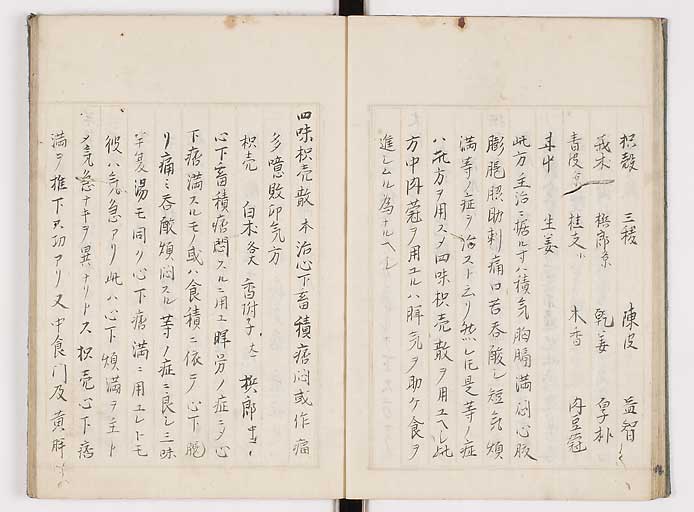 枳殻 三稜 陳皮 益智
莪朮 梹郎 乾姜 厚朴
青皮 桂支 木香 肉豆蔲
甘草 生姜
此方主治ニ拠ルニ積気胸膈満悶心腹
膨脹 脇肋刺痛口苦呑酸シ短気煩
満等ノ症ヲ治スト云リ然レ𪜈是等ノ症
ハ此方ヲ用ヒス四味枳売散ヲ用ユヘシ此
方中肉蔲ヲ用ユルハ脾気ヲ助ケ食ヲ
進シムル為ナルヘシ
四味枳売散 本治心下畜積痞悶或作痛
多噫敗卵気方
枳売 白朮各 香附子 梹郎
心下畜積痞悶スルニ用ユ 症ニ〆心
下痞満スルモノ或ハ食積ニ依テ心下
リ痛ミ呑酸煩悶スル等ノ症ニ良シ三味
半夏湯モ同ク心下痞満ニ用ユレトモ
彼ハ気急アリ此ハ心下煩満ヲ主ト
〆気急ナキヲ異ナリトス枳売心下痞
満ヲ推下スノ功アリ又中食門及黄胖